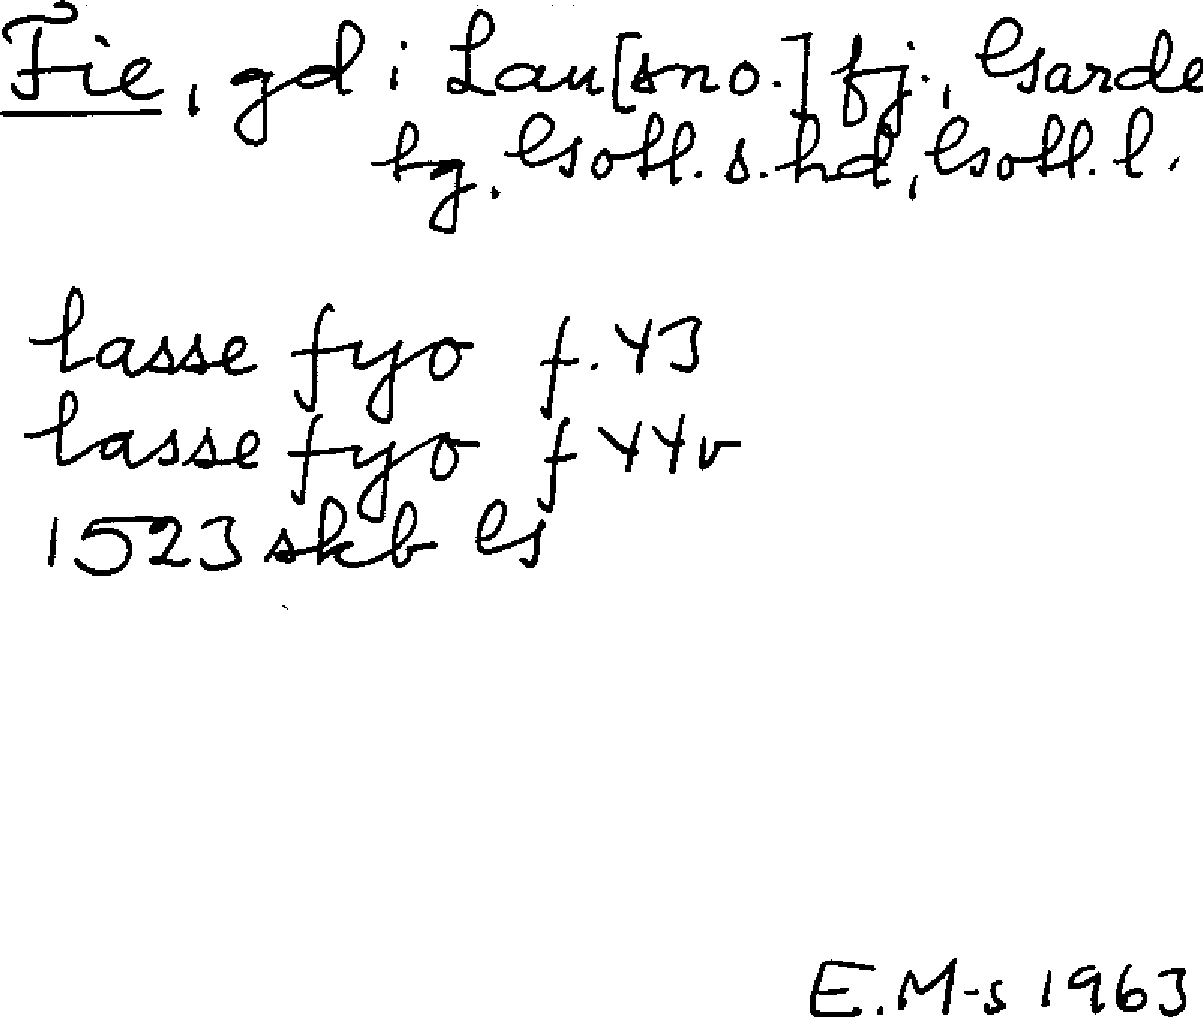 Fie, gd i Lau [sno.] fj., Garde
tg. Gotl. s. hd, Gotl. l.
lasse fyo f. 43
lasse fyo f 44v
1523 skb G
E.M-s 1963